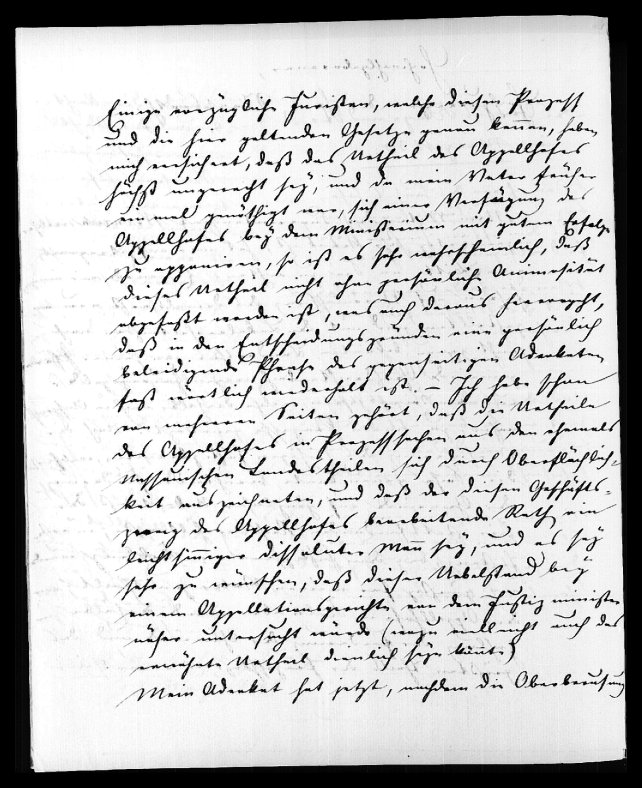 Einige vorzügliche Juristen, welche diesen Prozeß
und die hier geltenden Gesetze genau kennen, haben
mich versichert, daß das Urtheil des Appellhofes
höchst ungerecht sey, und da mein Vater früher
einmal genöthigt war, sich einer Verfügung des
Appellhofes bey dem Ministerium mit gutem Erfolge
zu opponiren, so ist es sehr wahrscheinlich, daß
dieses Urtheil nicht ohne persönliche Animosität
abgefaßt worden ist, was auch daraus hervorgeht,
daß in den Entscheidungsgründen eine persönlich
beleidigende Phrase des gegenseitigen Advokaten
fast wörtlich wiederholt ist. – Ich habe schon
von mehreren Seiten gehört, daß die Urtheile
des Appellhofes in Prozeßsachen aus den ehemals
Nassauischen Landestheilen sich durch Oberflächlich-
keit auszeichneten, und daß der diesen Geschäfts-
zweig des Appellhofes bearbeitende Rath ein
leichtsinniger dissoluter Mann sey, und es sey
sehr zu wünschen, daß dieser Uebelstand bey
einem Appellationsgerichte von dem Justizminister
näher untersucht würde (wozu vielleicht auch das
erwähnte Urtheil dienlich seyn könnte)
Mein Advokat hat jetzt, nachdem die Oberberufung